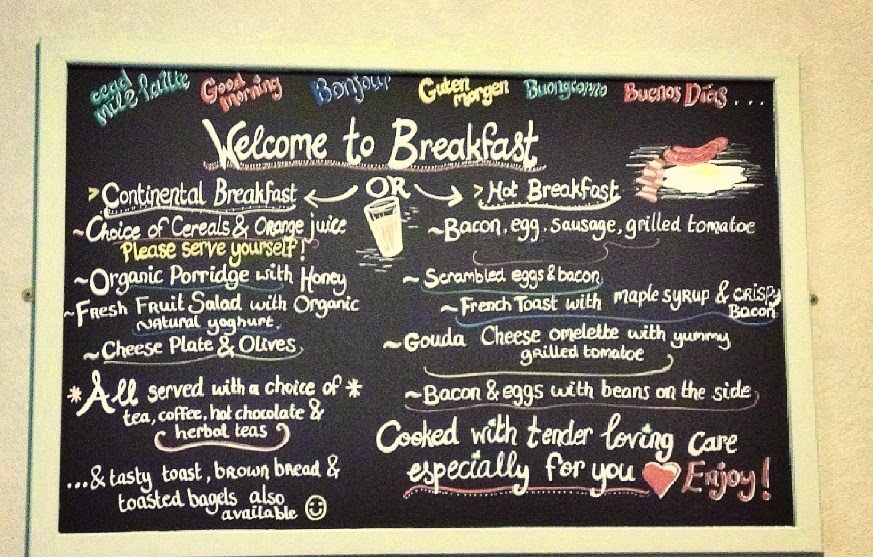 cead mile failte Good Morning Bonjour Guten morgen Buongiorno Buenos Dias...
Welcome to Breakfast
OR
>Continental Breakfast
~Choice of Cereals & Orange juice
Please serve yourself!
~Organic Porridge with Honey
~Fresh Fruit Salad with Organic
natural yoghurt.
~Cheese Plate & Olives
*All served with a choice of*
tea, coffee, hot chocolate &
herbal teas
...& tasty toast, brown bread &
toasted bagels also
available
>Hot Breakfast
~Bacon, egg, sausage, grilled tomatoe
~Scrambled eggs & bacon
~French Toast with maple syrup & crispy
Bacon
~Gouda Cheese omelette with yummy
grilled tomatoe
~Bacon & eggs with beans on the side
Cooked with tender loving care
especially for you Enjoy!